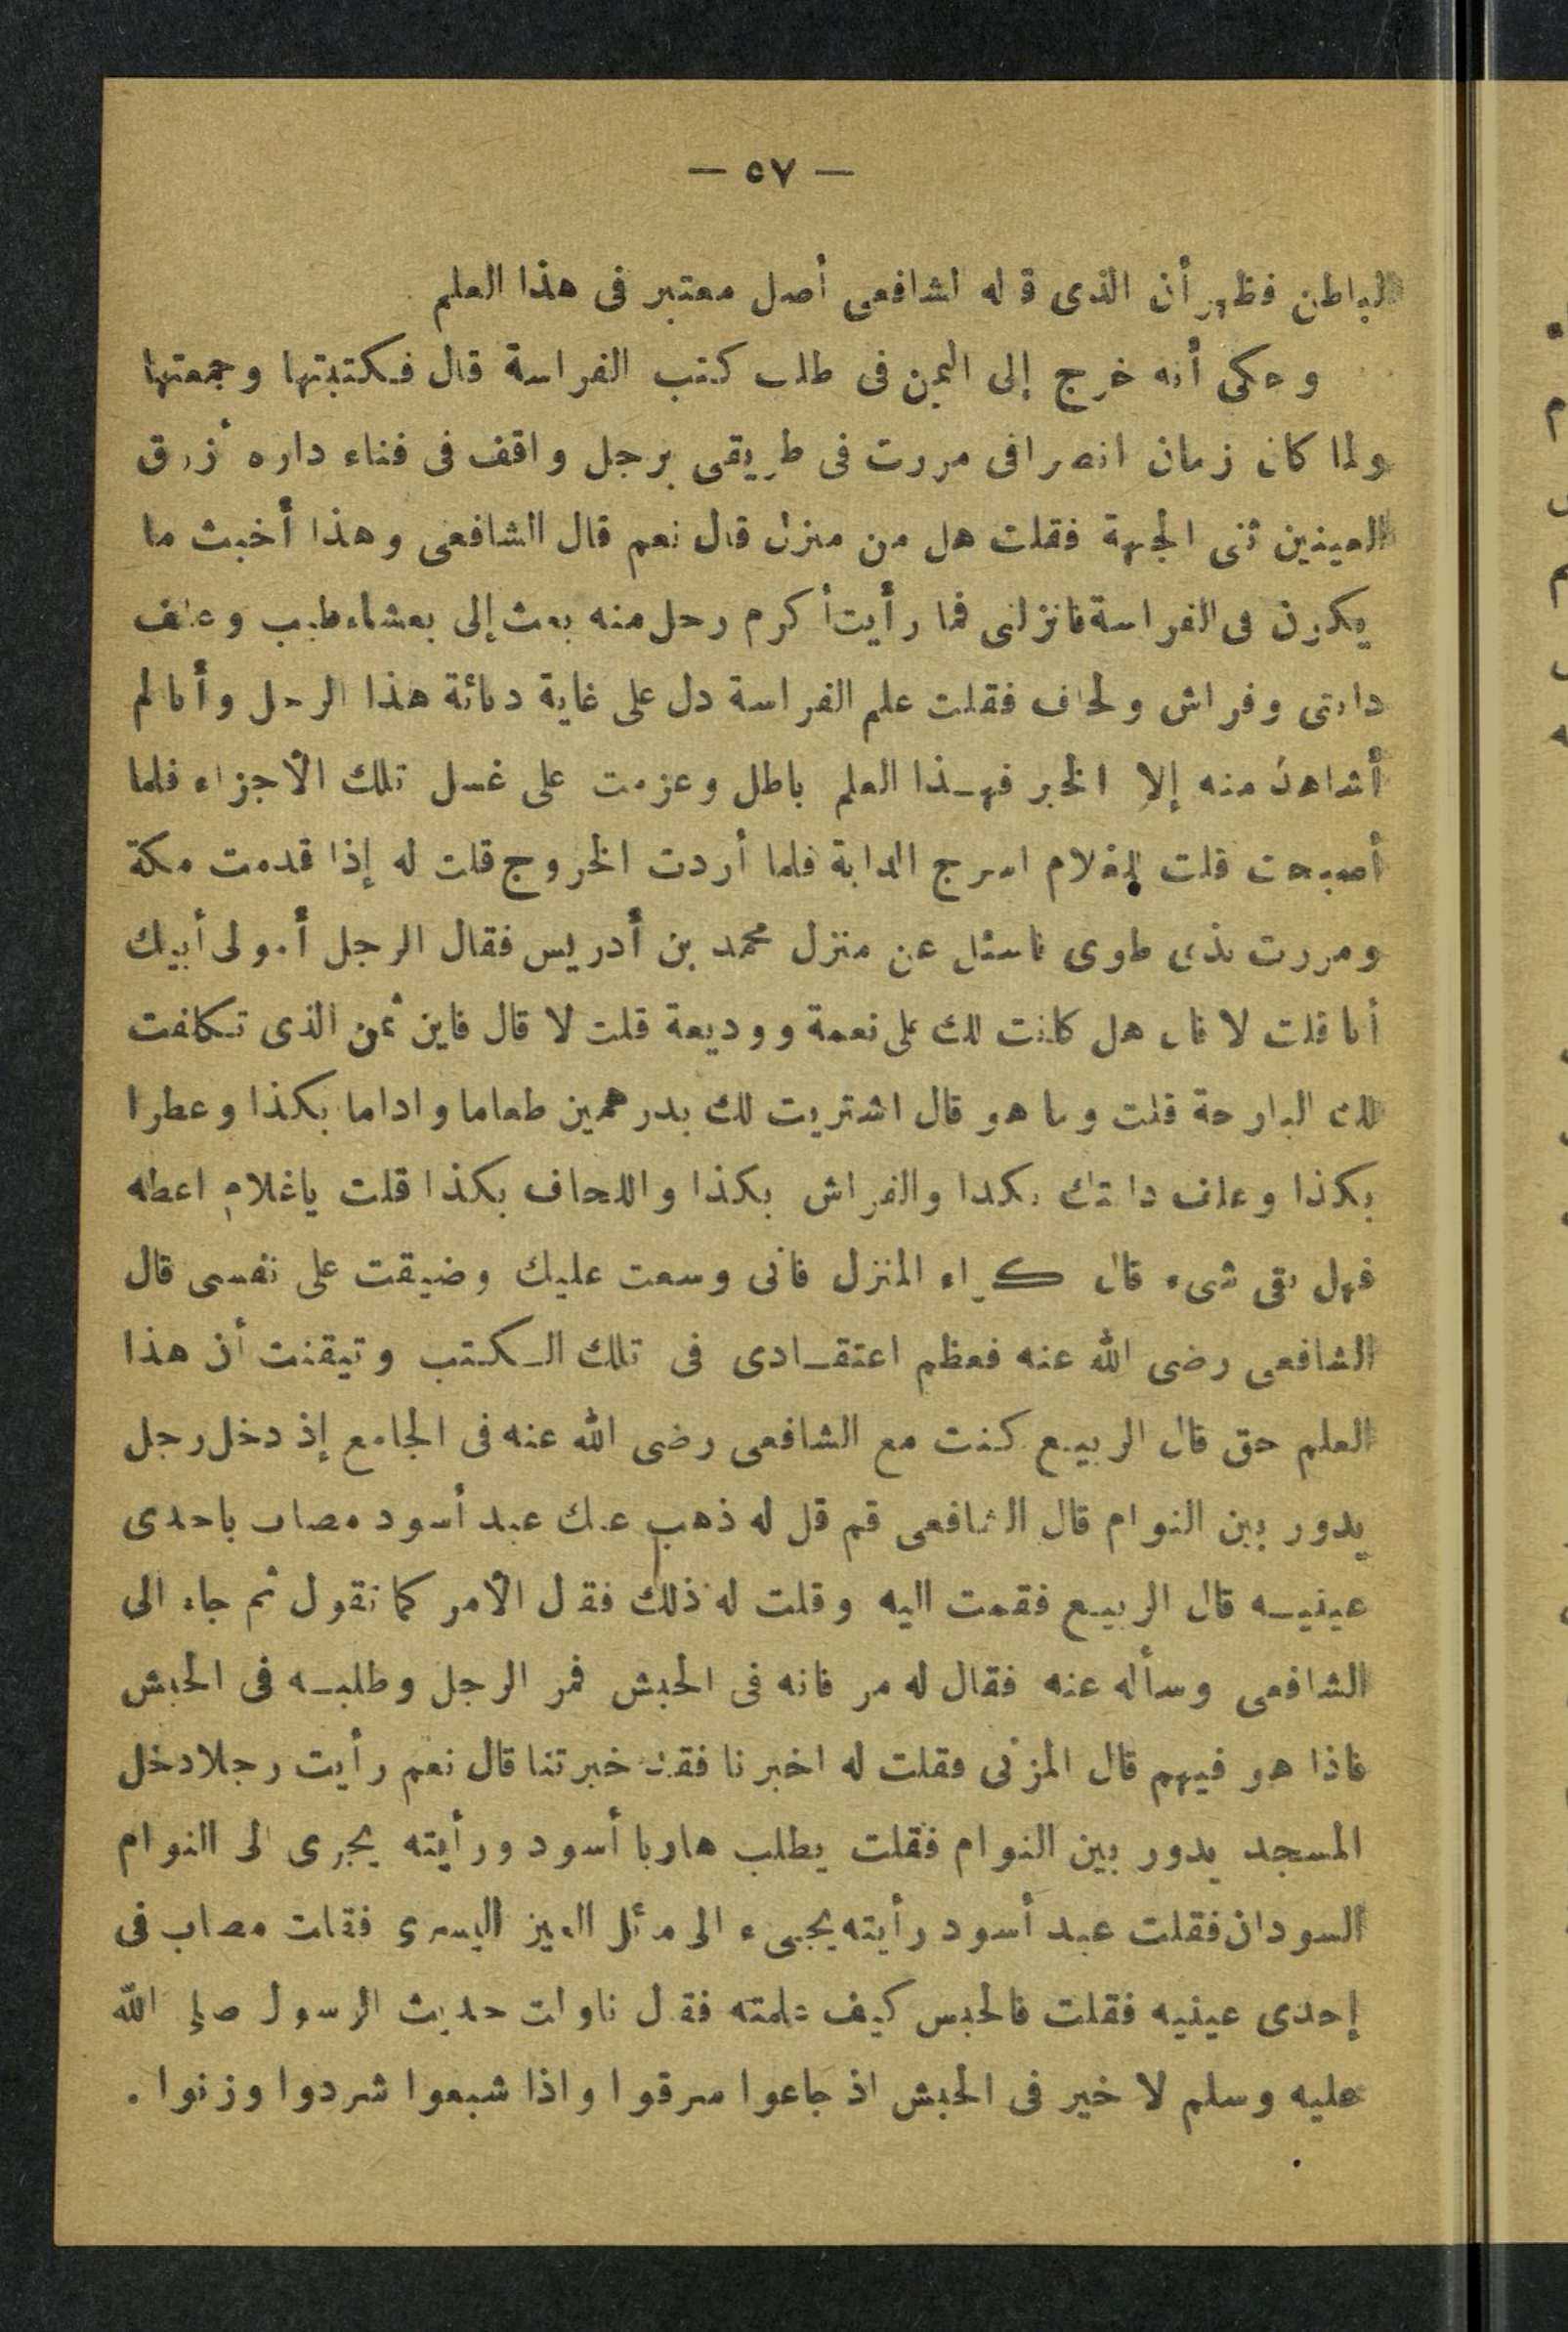 — ٥٧ —
الباطن فظهر أن الذى قاله الشافعى أصل معتبر فى هذا العلم
وحكى أنه خرج إلى اليمن فى طلب كتب الفراسة قال فكتبتها وجمعتها
ولما كان زمان انصرافى مررت فى طريقى برجل واقف فى فناء داره أزرق
العينين ثنى الجبهة فقلت هل من منزل قال نعم قال الشافعى وهذا أخبث ما
يكون فى الفراسة فانزلنى فما رأيت أكرم رجل منه بعث إلى بعشاء طيب وعلف
دابتى وفراش ولحاف فقلت علم الفراسة دل على غاية دنائة هذا الرجل وأنا لم
أشاهد منه إلا الخير فهذا العلم باطل وعزمت على غسل تلك الأجزاء فلما
أصبحت قلت للغلام اسرج الدابة فلما أردت الخروج قلت له إذا قدمت مكة
ومررت بذى طوى فاسئل عن منزل محمد بن أدريس فقال الرجل أمولى أبيك
أنا قلت لا قال هل كانت لك على نعمة ووديعة قلت لا قال فاين ثمن الذى تكلفت
لك البارحة قلت وما هو قال اشتريت لك بدرهمين طعاما واداما بكذا وعطرا
بكذا وعلف دابتك بكذا والفراش بكذا واللحاف بكذا قلت ياغلام اعطه
فهل بقى شىء قال كراء المنزل فانى وسعت عليك وضيقت على نفسى قال
الشافعى رضى الله عنه فعظم اعتقادى فى تلك الكتب وتيقنت أن هذا
العلم حق قال الربيع كنت مع الشافعى رضى الله عنه فى الجامع إذ دخل رجل
يدور بين النوام قال الشافعى قم قل له ذهب عنك عبد أسود مصاب باحدى
عينيه قال الربيع فقمت اليه وقلت له ذلك فقال الأمر كما تقول ثم جاء الى
الشافعى وسأله عنه فقال له مر فانه فى الحبش فمر الرجل وطلبه فى الحبش
فاذا هو فيهم قال المزنى فقلت له اخبرنا فقد خبرتنا قال نعم رأيت رجلا دخل
المسجد يدور بين النوام فقلت يطلب هاربا أسود ورأيته يجرى الى النوام
السودان فقلت عبد أسود رأيته يجيىء الى مائل العين اليسرى فقلت مصاب فى
إحدى عينيه فقلت فالحبس كيف علمته فقال ناولت حديث الرسول صلى الله
عليه وسلم لا خير فى الحبش اذ جاعوا سرقوا واذا شبعوا شردوا وزنوا .